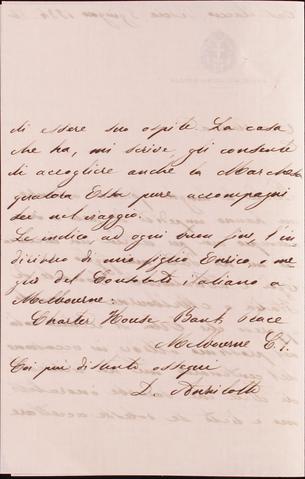 di essere suo ospite. La casa
che ha, mi scrive, gli consente
di accogliere anche la Marchesa
qualora Essa pure accompagni
nel viaggio.
Le indico, ad ogni buon fine, l'in
dirizzo di mio figlio Enrico, o me
glio del Consolato italiano a
Melbourne:
Charter House Bank Place
Melbourne C.1.
Coi più distinti ossequi
D.